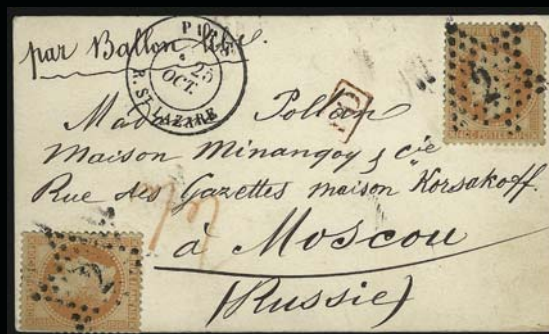 par Ballon libre.
PARIS
25
OCT.
R. ST LAZARE
Mad Pollan
Maison Minangoy & Cie
Rue des Gazettes maison Korsakoff.
à Moscou
(Russie)
PD
2
2